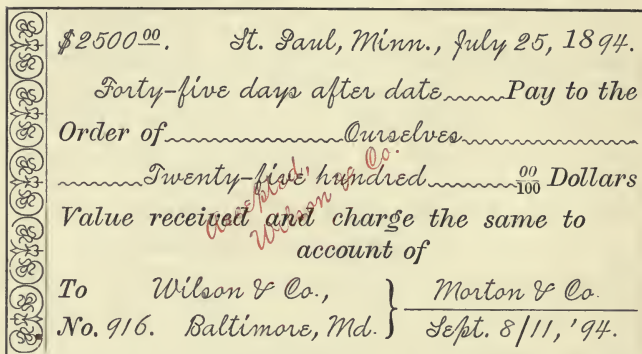 $2500 00. St. Paul, Minn., July 25, 1894.
Forty-five days after date Pay to the
Order of Ourselves
Twenty-five hundred 00/100 Dollars
Value received and charge the same to
account of
Accepted,
Wilson & Co.
To Wilson & Co., Morton & Co.
No. 916. Baltimore, Md. Sept. 8/11, '94.